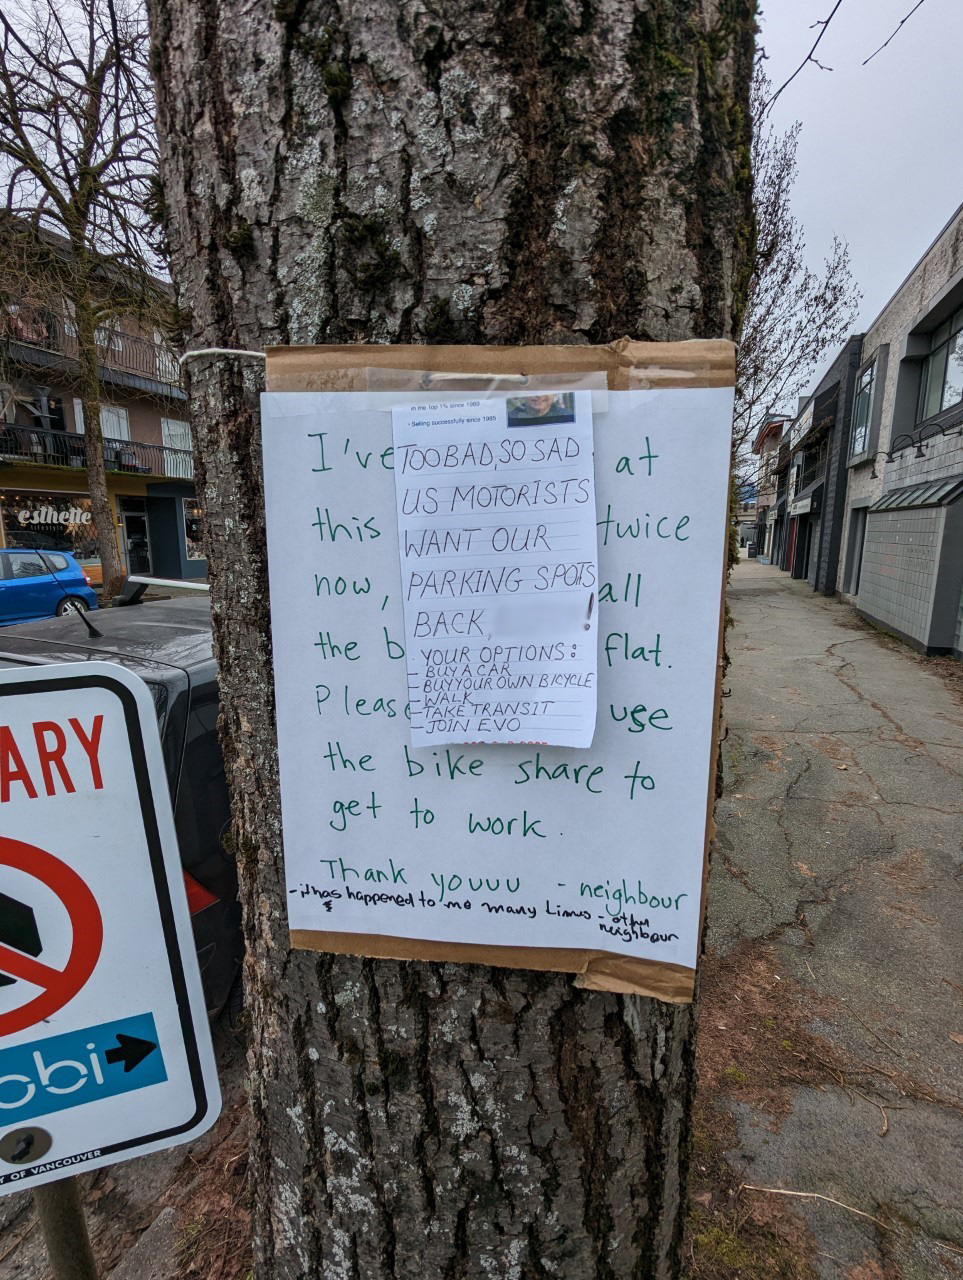 in the Top 1% since 1989
- Selling successfully since 1985
TOO BAD, SO SAD
US MOTORISTS
WANT OUR
PARKING SPOTS
BACK, !
YOUR OPTIONS:
- BUY A CAR
- BUY YOUR OWN BICYCLE
- WALK
- TAKE TRANSIT
- JOIN EVO
I've at
this twice
now, all
the b flat.
Please use
the bike share to
get to work.
Thank youuu - neighbour
- it has happened to me many times - other
neighbour
esthetic
lifestyle
ARY
obi
Y OF VANCOUVER